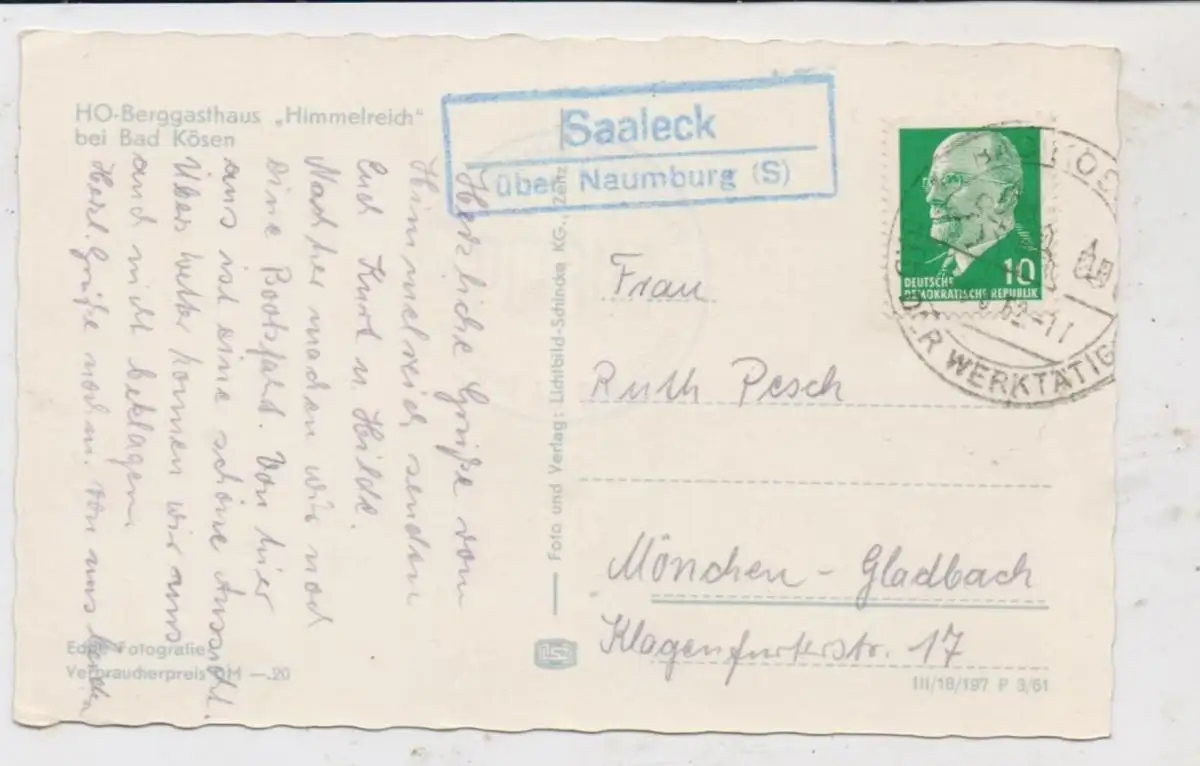 HO-Berggasthaus „Himmelreich"
bei Bad Kösen
Saaleck
über Naumburg (S)
Herzliche Grüße vom
Himmelreich senden
Euch Kurt u Hilde.
Nachher machen wir noch
eine Bootsfahrt. Von hier
aus ist eine schöne Aussicht.
Übers Wetter können wir uns
auch nicht beklagen
Herzl. Grüße noch m. von uns beiden
Foto und Verlag: Lichtbild-Schincke KG., Zeitz
10
DEUTSCHE
DEMOKRATISCHE REPUBLIK
BAD KÖS
DER WERKTÄTIG
62-17
Frau
Ruth Pesch
Mönchen-Gladbach
Klagenfurterstr. 17
Echte Fotografie
Verbraucherpreis DM —.20
III/18/197 P 3/61